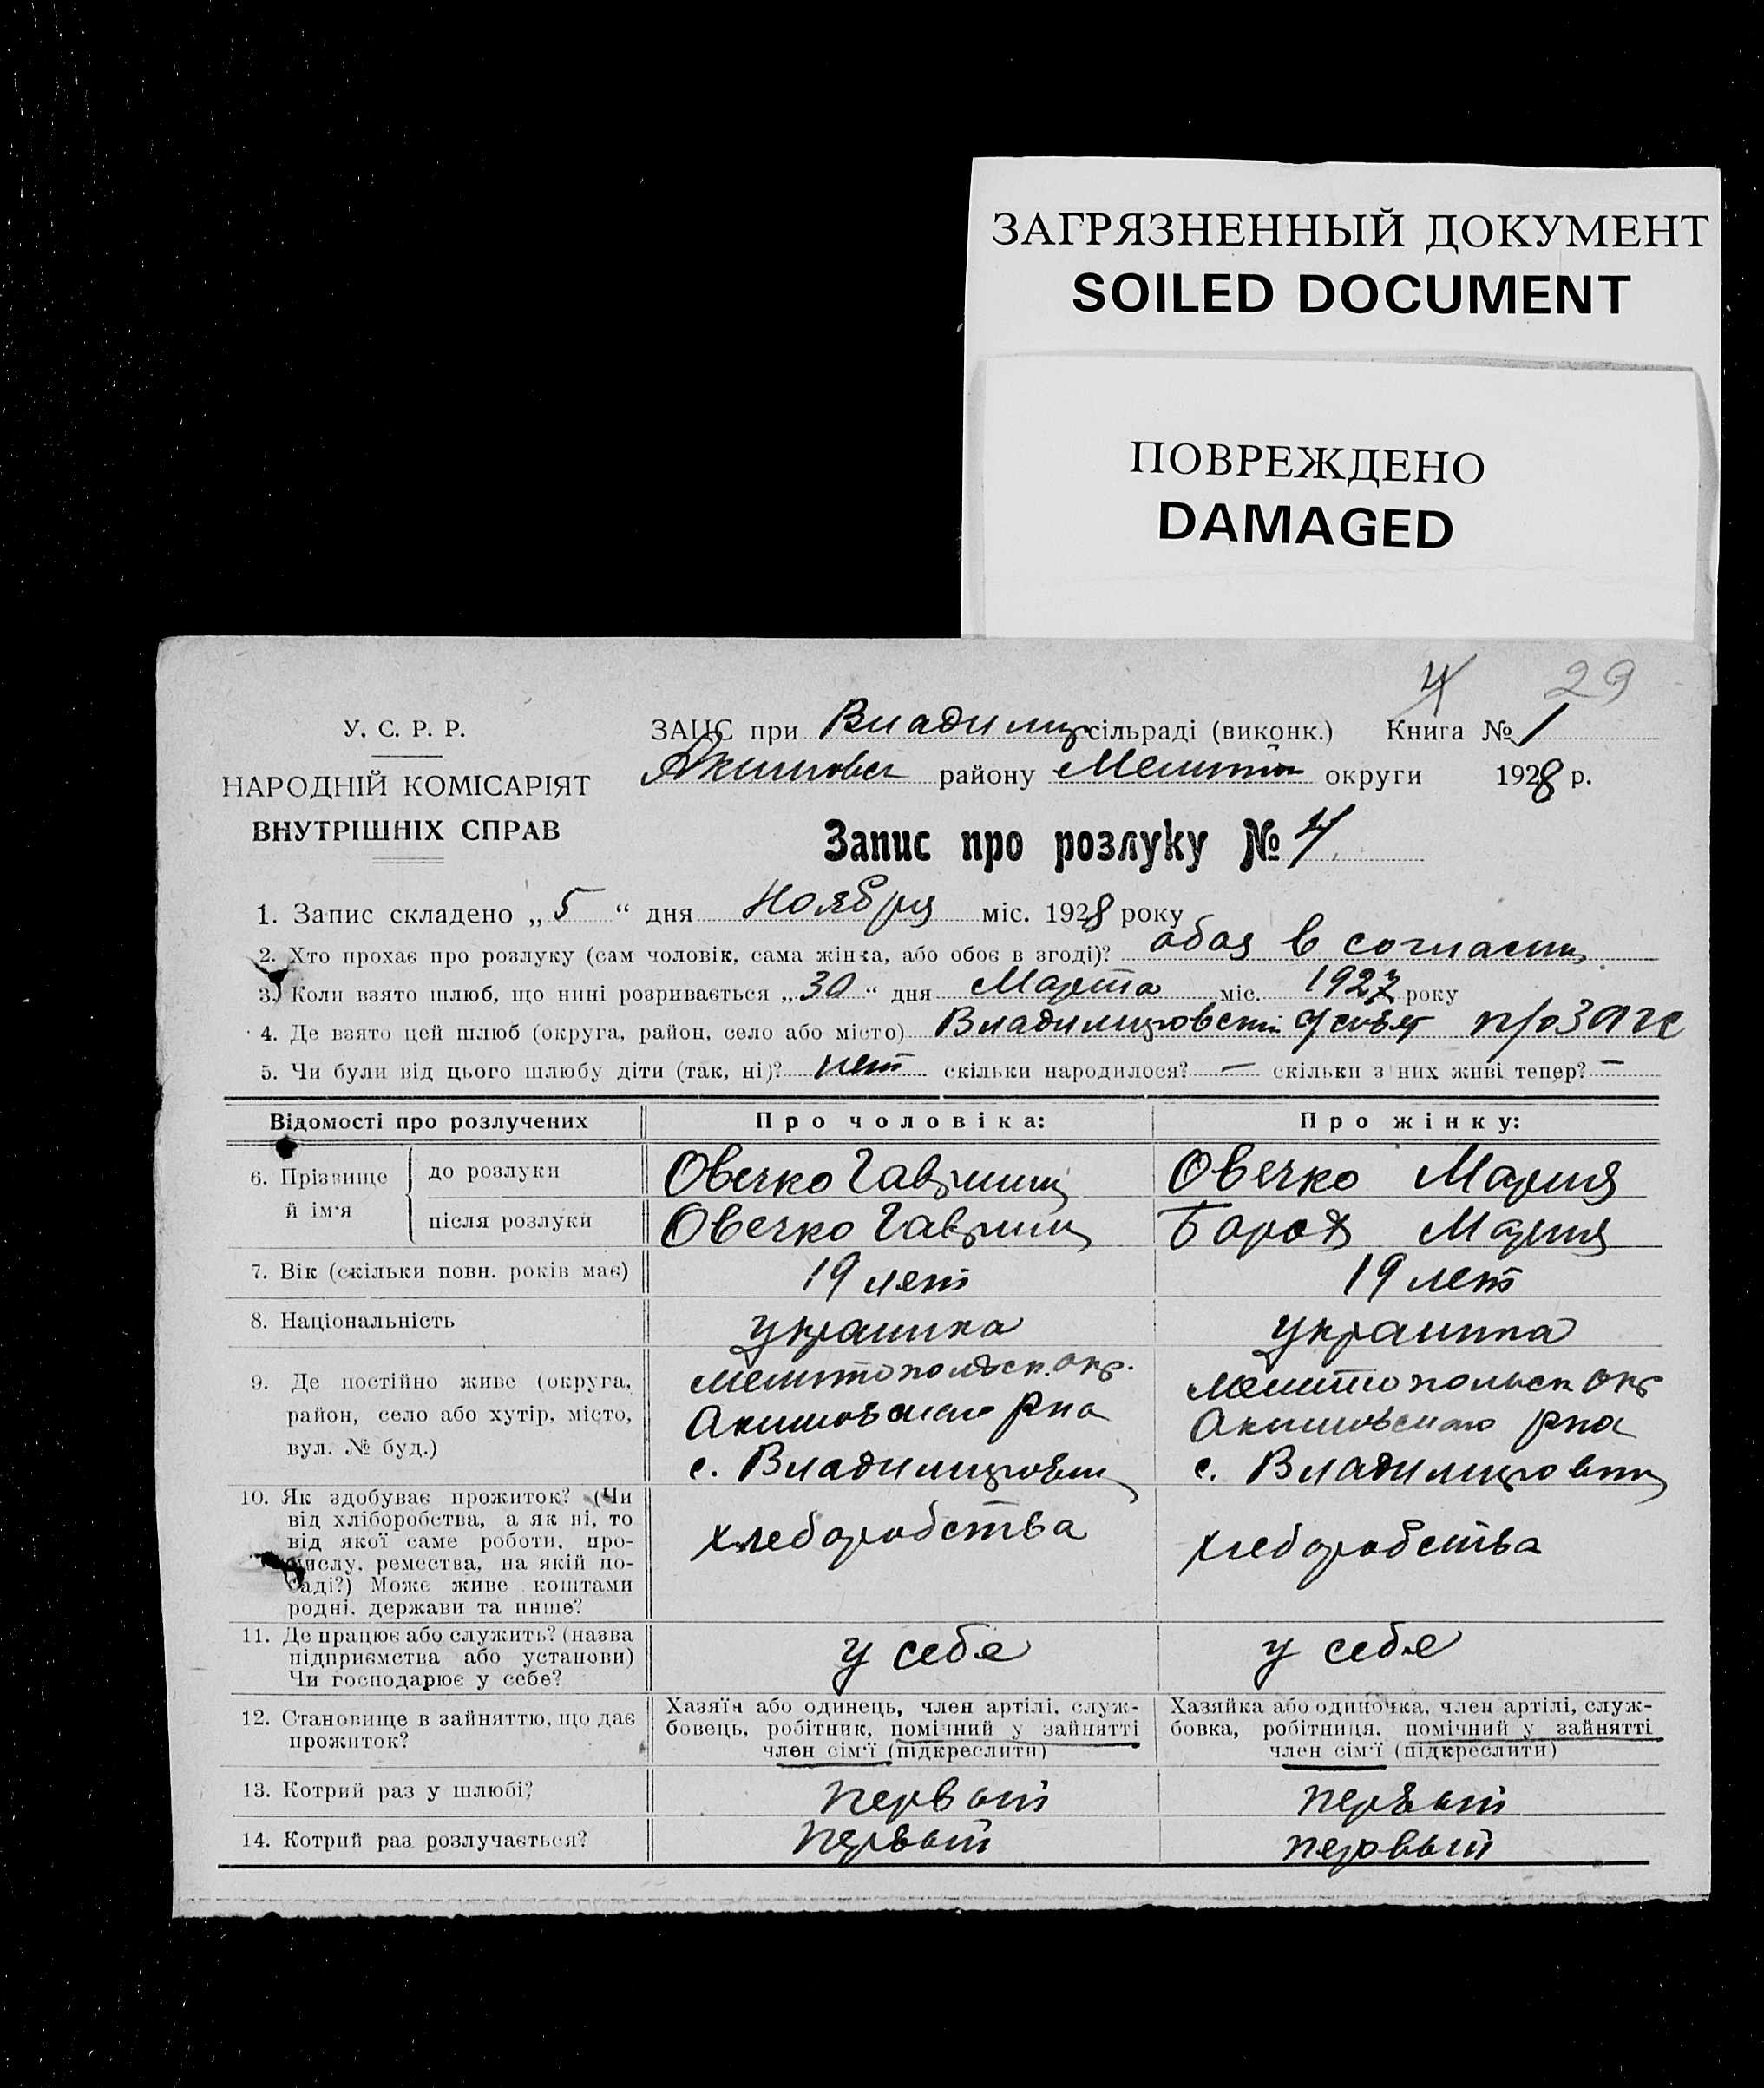 ЗАГРЯЗНЕННЫЙ ДОКУМЕНТ
SOILED DOCUMENT
ПОВРЕЖДЕНО
DAMAGED
4 29
У. С. Р. Р.
НАРОДНІЙ КОМІСАРІЯТ
ВНУТРІШНІХ СПРАВ
ЗАЦС при Владимир сільраді (виконк.) Книга № 1
Акимовск району Мелитоп округи 1928 р.
Запис про розлуку № 4
1. Запис складено „ 5 “ дня Ноября міс. 1928 року
2. Хто прохає про розлуку (сам чоловік, сама жінка, або обоє в згоді)? обоя в согласии
3. Коли взято шлюб, що нині розривається „ 30 “ дня Марта міс. 1927 року
4. Де взято цей шлюб (округа, район, село або місто) Владимировский
5. Чи були від цього шлюбу діти (так, ні)? нет скільки народилося? — скільки з них живі тепер? —
Відомості про розлучених
Про чоловіка:
Про жінку:
6. Прізвище й ім'я
до розлуки
Овечко Гавриил
Овечко Мария
після розлуки
Овечко Гавриил
Мария
7. Вік (скільки повн. років має)
19 лет
19 лет
8. Національність
украинка
украинка
9. Де постійно живе (округа,
район, село або хутір, місто,
вул. № буд.)
Мелитопольск. окр.
Акимовского рна
с. Владимировки
Мелитопольск окр
Акимовского рна
с. Владимировки
10. Як здобуває прожиток? (Чи
від хліборобства, а як ні, то
від якої саме роботи, про-
мислу, ремества, на якій по-
саді?) Може живе коштами
родні, держави та инше?
хлеборобства
хлеборобства
11. Де працює або служить? (назва
підприємства або установи)
Чи господарює у себе?
у себе
у себе
12. Становище в зайняттю, що дає
прожиток?
Хазяїн або одинець, член артілі, служ-
бовець, робітник, помічний у зайнятті
член сім'ї (підкреслити)
Хазяйка або одиночка, член артілі, служ-
бовка, робітниця, помічний у зайнятті
член сім'ї (підкреслити)
13. Котрий раз у шлюбі?
первый
первый
14. Котрий раз розлучається?
первый
первый